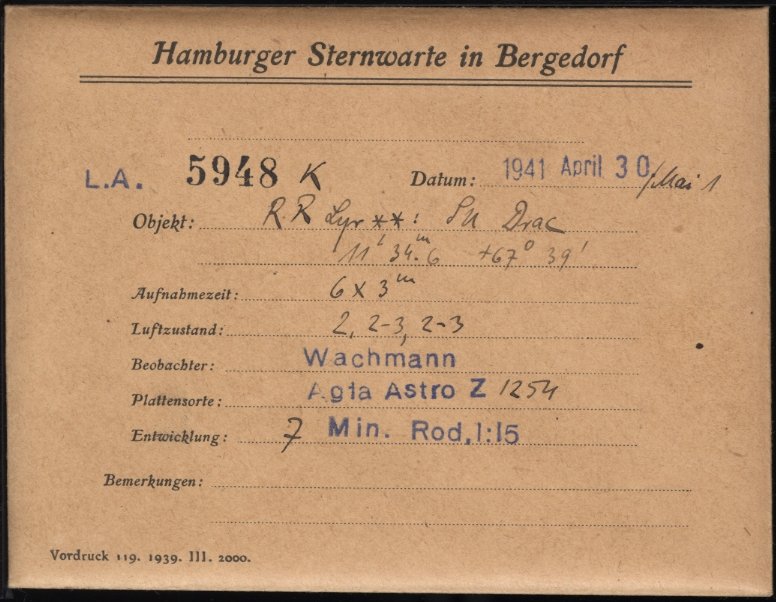 Hamburger Sternwarte in Bergedorf
L.A. 5948 K Datum: 1941 April 30/Mai 1
Objekt: RR Lyr **: SU Drac
11ʰ 34.ᵐ6 +67° 39'
Aufnahmezeit: 6 x 3ᵐ
Luftzustand: 2, 2-3, 2-3
Beobachter: Wachmann
Plattensorte: Agfa Astro Z 1254
Entwicklung: 7 Min. Rod, 1:15
Bemerkungen:
Vordruck 119. 1939. III. 2000.